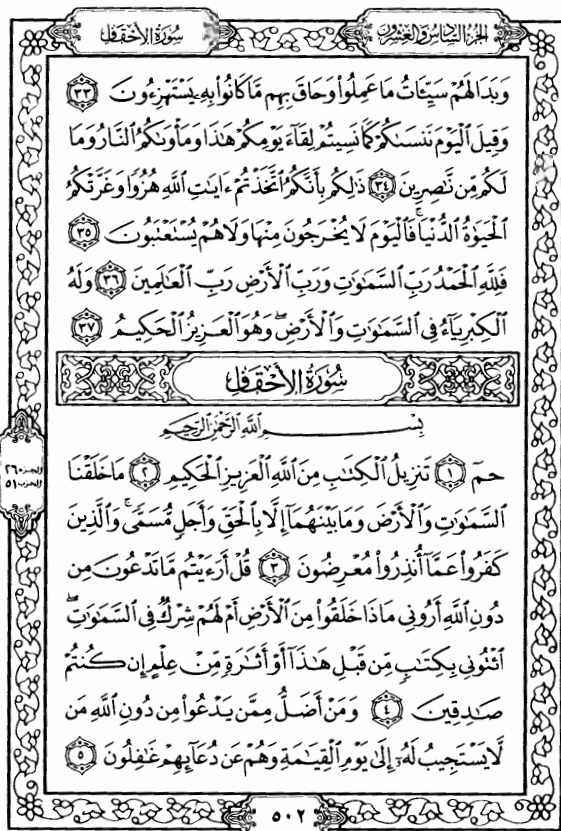 الجزء السادس والعشرون
سورة الأحقاف
وَبَدَا لَهُمْ سَيِّئَاتُ مَا عَمِلُوا۟ وَحَاقَ بِهِم مَّا كَانُوا۟ بِهِۦ يَسْتَهْزِءُونَ ٣٣
وَقِيلَ ٱلْيَوْمَ نَنسَىٰكُمْ كَمَا نَسِيتُمْ لِقَآءَ يَوْمِكُمْ هَٰذَا وَمَأْوَىٰكُمُ ٱلنَّارُ وَمَا
لَكُم مِّن نَّٰصِرِينَ ٣٤ ذَٰلِكُم بِأَنَّكُمُ ٱتَّخَذْتُمْ ءَايَٰتِ ٱللَّهِ هُزُوًا وَغَرَّتْكُمُ
ٱلْحَيَوٰةُ ٱلدُّنْيَا ۚ فَٱلْيَوْمَ لَا يُخْرَجُونَ مِنْهَا وَلَا هُمْ يُسْتَعْتَبُونَ ٣٥
فَلِلَّهِ ٱلْحَمْدُ رَبِّ ٱلسَّمَٰوَٰتِ وَرَبِّ ٱلْأَرْضِ رَبِّ ٱلْعَٰلَمِينَ ٣٦ وَلَهُ
ٱلْكِبْرِيَآءُ فِى ٱلسَّمَٰوَٰتِ وَٱلْأَرْضِ ۖ وَهُوَ ٱلْعَزِيزُ ٱلْحَكِيمُ ٣٧
سُورَةُ الأَحْقَافِ
بِسْمِ ٱللَّهِ ٱلرَّحْمَٰنِ ٱلرَّحِيمِ
حمٓ ١ تَنزِيلُ ٱلْكِتَٰبِ مِنَ ٱللَّهِ ٱلْعَزِيزِ ٱلْحَكِيمِ ٢ مَا خَلَقْنَا
ٱلسَّمَٰوَٰتِ وَٱلْأَرْضَ وَمَا بَيْنَهُمَآ إِلَّا بِٱلْحَقِّ وَأَجَلٍ مُّسَمًّى ۚ وَٱلَّذِينَ
كَفَرُوا۟ عَمَّآ أُنذِرُوا۟ مُعْرِضُونَ ٣ قُلْ أَرَءَيْتُم مَّا تَدْعُونَ مِن
دُونِ ٱللَّهِ أَرُونِى مَاذَا خَلَقُوا۟ مِنَ ٱلْأَرْضِ أَمْ لَهُمْ شِرْكٌ فِى ٱلسَّمَٰوَٰتِ ۖ
ٱئْتُونِى بِكِتَٰبٍ مِّن قَبْلِ هَٰذَآ أَوْ أَثَٰرَةٍ مِّنْ عِلْمٍ إِن كُنتُمْ
صَٰدِقِينَ ٤ وَمَنْ أَضَلُّ مِمَّن يَدْعُوا۟ مِن دُونِ ٱللَّهِ مَن
لَّا يَسْتَجِيبُ لَهُۥٓ إِلَىٰ يَوْمِ ٱلْقِيَٰمَةِ وَهُمْ عَن دُعَآئِهِمْ غَٰفِلُونَ ٥
الجزء ٢٦
الحزب ٥١
٥٠٢